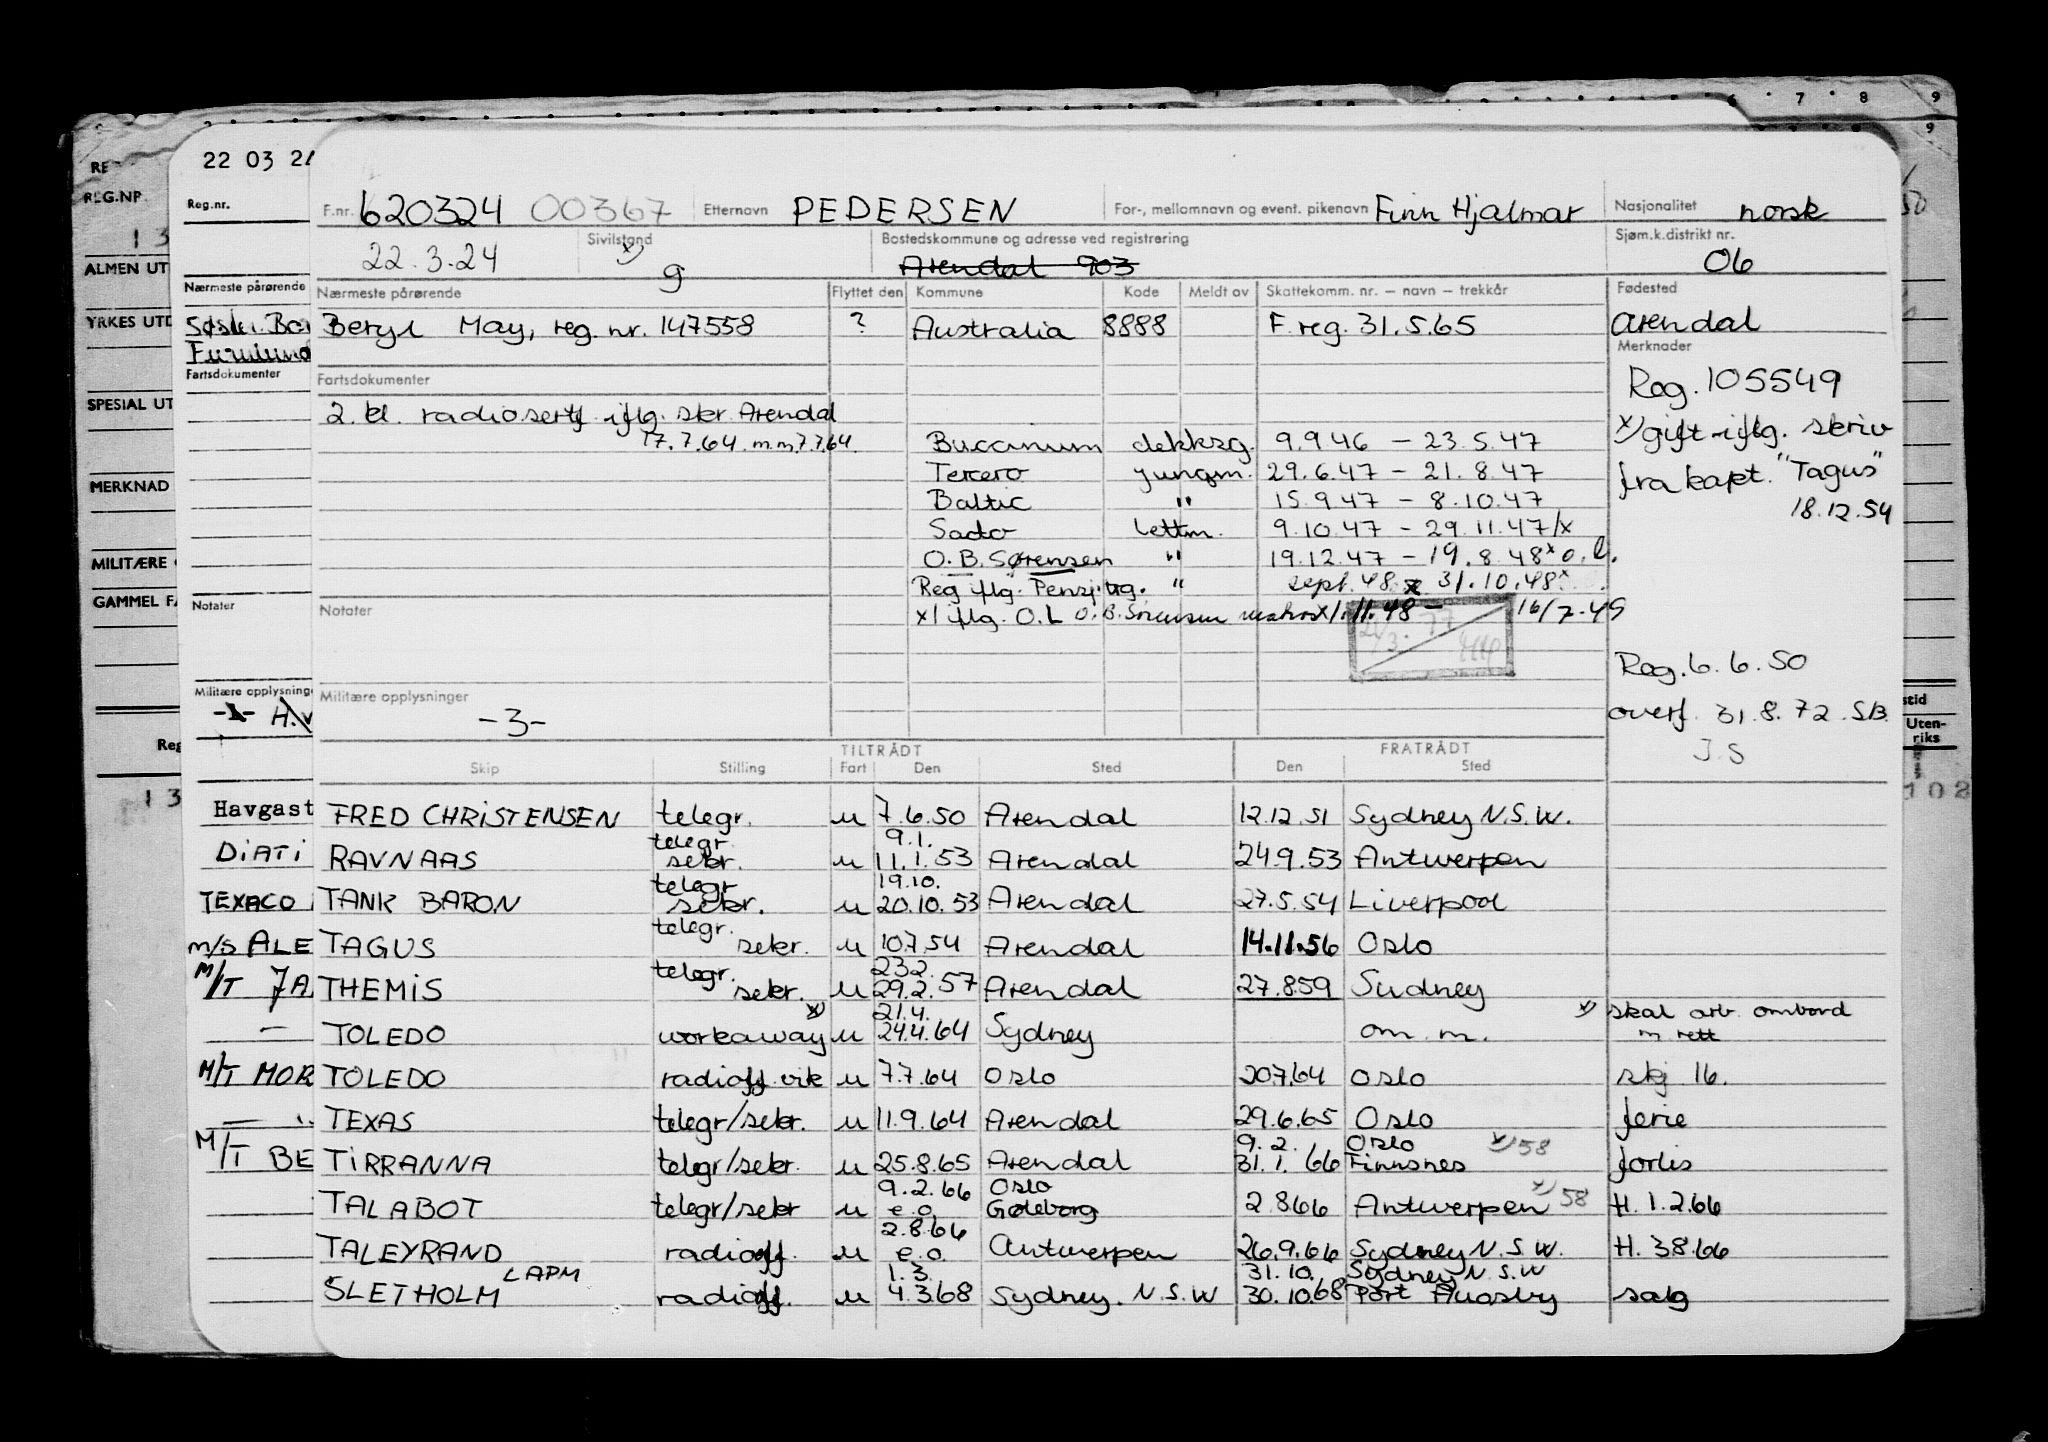 22 03 2
Reg.nr.
F.nr. 620324 00367 Etternavn PEDERSEN For-, mellomnavn og event. pikenavn Finn Hjalmar Nasjonalitet norsk
22.3.24 Sivilstand x) g Bostedskommune og adresse ved registrering Arendal 903 Sjøm.k.distrikt nr. 06
Nærmeste pårørende Flyttet den Kommune Kode Meldt av Skattekomm. nr. – navn – trekkår Fødested
Beryl May, reg. nr. 147558 ? Australia 8888 F.reg. 31.5.65 Arendal
Merknader
Reg. 105549
x) gift iflg. skriv
fra kapt. "Tagus"
18.12.54
Fartsdokumenter
2. kl. radiosertf iflg. skr. Arendal
17.7.64 m.m 7.7.64.
Buccinum dekksg. 9.9.46 – 23.5.47
Tercero jungm. 29.6.47 – 21.8.47
Baltic " 15.9.47 – 8.10.47
Sado lettm. 9.10.47 – 29.11.47/x
O.B. Sørensen " 19.12.47 – 19.8.48 x o.l.
Reg iflg. Pensj.trg. " sept. 48 x 31.10.48 x
Notater
x/ iflg. O.L O.B. Sørensen matros x 1.11.48 – 16/7-49
Reg. 6.6.50
overf. 31.8.72 SB
J.S
Militære opplysninger
-3-
TILTRÅDT FRATRÅDT
Skip Stilling Fart Den Sted Den Sted
FRED CHRISTENSEN telegr. u 7.6.50 Arendal 12.12.51 Sydney N.S.W.
RAVNAAS telegr. sekr. u 9.1. 11.1.53 Arendal 24.9.53 Antwerpen
TANK BARON telegr. sekr. u 19.10. 20.10.53 Arendal 27.5.54 Liverpool
TAGUS telegr. sekr. u 10.7.54 Arendal 14.11.56 Oslo
THEMIS telegr. sekr. u 23.2. 29.2.57 Arendal 27.8.59 Sydney
TOLEDO workaway x) u 21.4. 24.4.64 Sydney om.m. x) skal arb. ombord m rett
TOLEDO radioff vik u 7.7.64 Oslo 20.7.64 Oslo skj 16.
TEXAS telegr/sekr. u 11.9.64 Arendal 29.6.65 Oslo ferie
TIRRANNA telegr/sekr. u 25.8.65 Arendal 9.2. 31.1.66 Oslo Finnsnes x) 58 forlis
TALABOT telegr/sekr u 9.2.66 e.o. Oslo Gøteborg 2.8.66 Antwerpen x) 58 H. 1.2.66
TALEYRAND radioff. u 2.8.66 e.o. Antwerpen 26.9.66 Sydney N.S.W. H. 3.8.66
SLETHOLM LAPM radioff. u 1.3. 4.3.68 Sydney. N.S.W 31.10. 30.10.68 Sydney N.S.W Port salg
Nærmeste pårørende
Fartsdokumenter
Notater
Militære opplysning
Havgast
DiATi
TEXACO
M/S ALE
M/T JA
M/T MOR
M/T BE
REG.NR
ALMEN UT
YRKES UTD
SPESIAL UT
MERKNAD
MILITÆRE
GAMMEL FA
Reg
6 7 8 9
9
stid
Uten-
riks